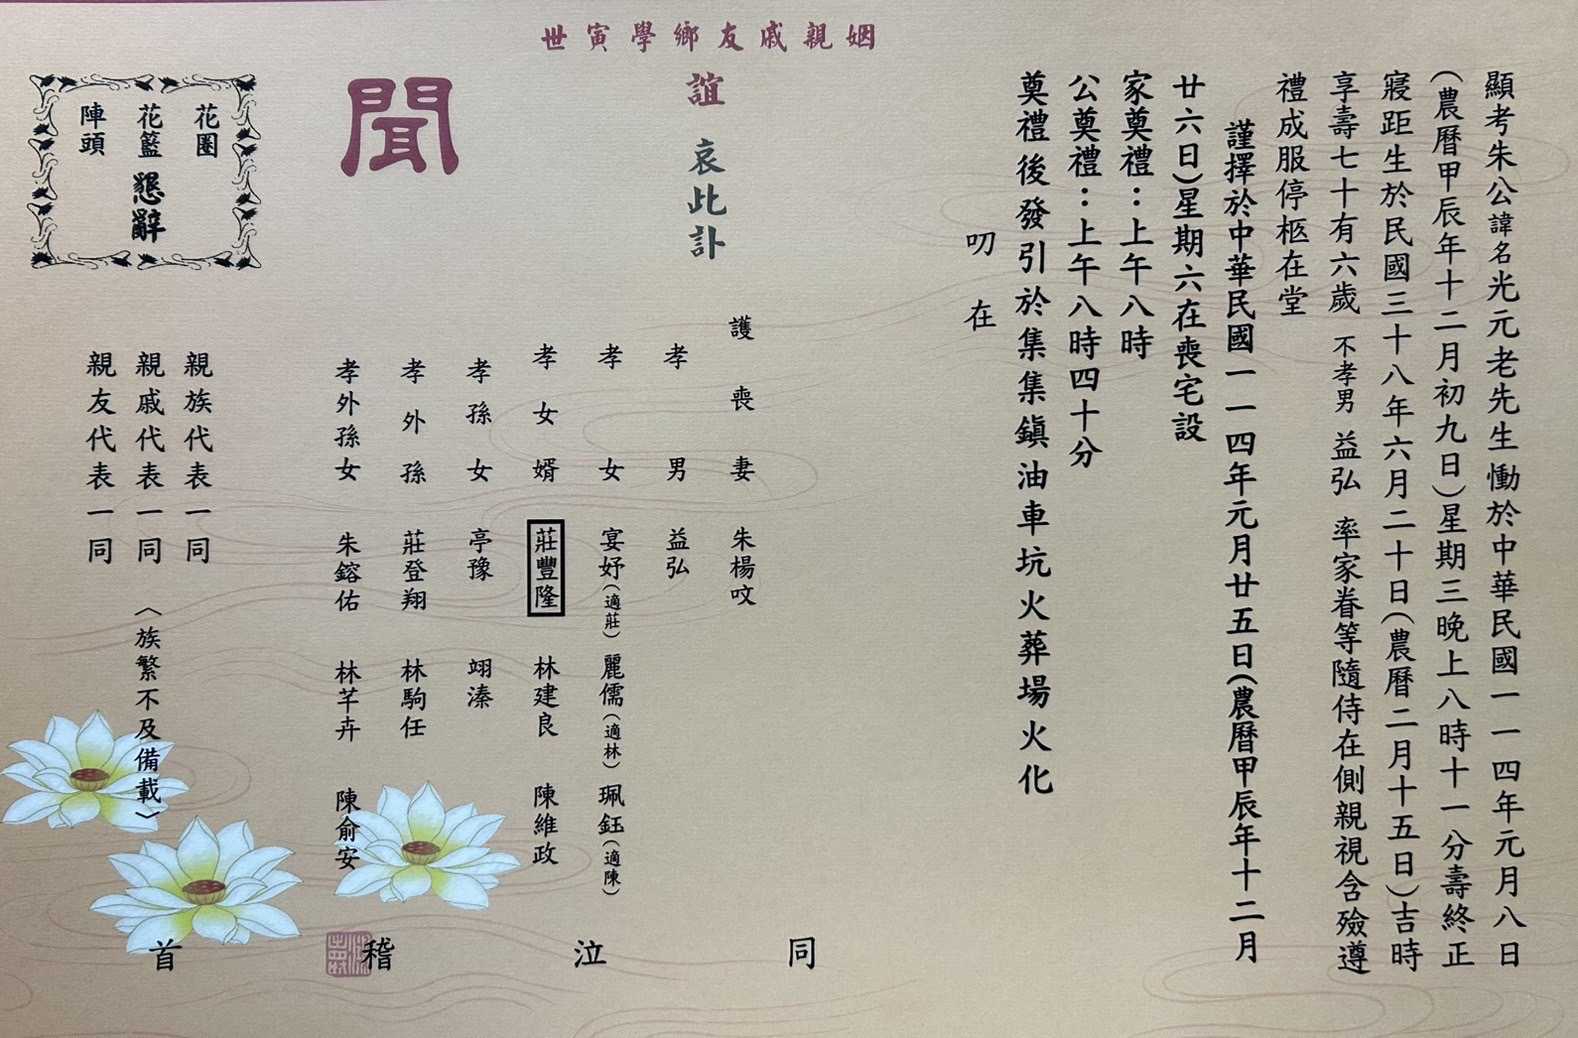 顯考朱公諱名光元老先生慟於中華民國一一四年元月八日
(農曆甲辰年十二月初九日)星期三晚上八時十一分壽終正
寢距生於民國三十八年六月二十日(農曆二月十五日)吉時
享壽七十有六歲 不孝男 益弘 率家眷等隨侍在側親視含殮遵
禮成服停柩在堂
謹擇於中華民國一一四年元月廿五日(農曆甲辰年十二月
廿六日)星期六在喪宅設
家奠禮：上午八時
公奠禮：上午八時四十分
奠禮後發引於集集鎮油車坑火葬場火化
叨在
姻親戚友鄉學寅世
誼 哀此訃
聞
護喪妻 朱楊呅
孝男 益弘
孝女 宴妤(適莊) 麗儒(適林) 珮鈺(適陳)
孝女婿 莊豐隆 林建良 陳維政
孝孫女 亭豫 翊溱
孝外孫 莊登翔 林駒任
孝外孫女 朱鎔佑 林芊卉 陳俞安
同泣稽首
親族代表一同
親戚代表一同
親友代表一同
〈族繁不及備載〉
花圈
花籃
陣頭
懇辭